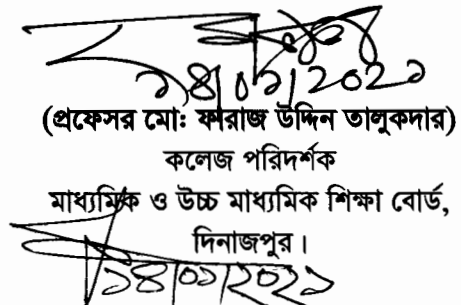 ১৪/০১/2021
(প্রফেসর মো: ফারাজ উদ্দিন তালুকদার)
কলেজ পরিদর্শক
মাধ্যমিক ও উচ্চ মাধ্যমিক শিক্ষা বোর্ড,
দিনাজপুর।
১৪/০১/2021